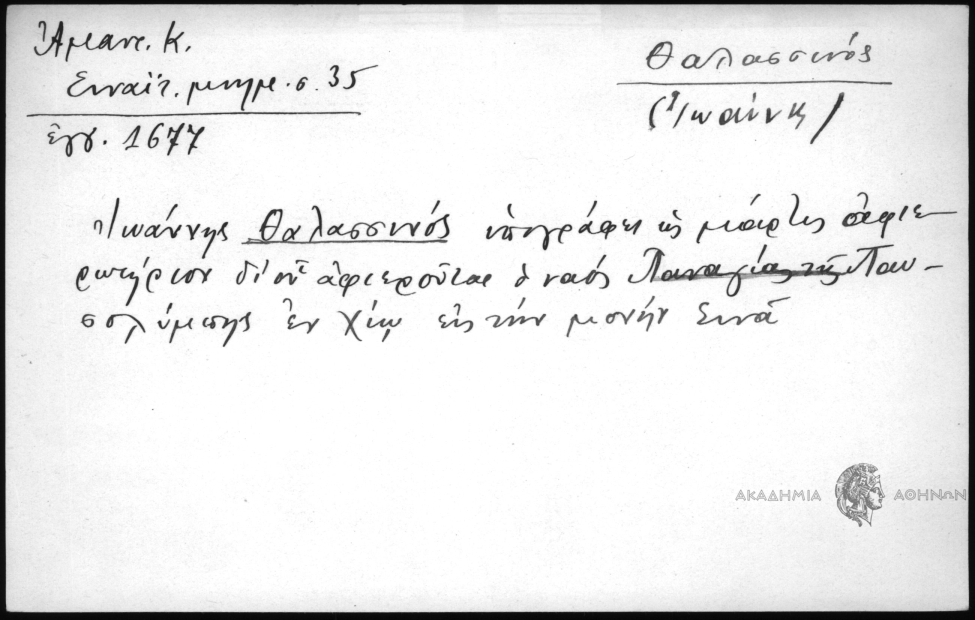 Ἀμαντ. Κ.
Σιναϊτ. μνημ. σ. 35
ἔγγ. 1677
Θαλασσινός
(Ἰωάννης)
Ἰωάννης Θαλασσινός ὑπογράφει ὡς μάρτυς ἀφιε-
ρωτήριον δι' οὗ ἀφιεροῦται ὁ ναός Παναγίας τῆς Παυ-
σολύμπης ἐν Χίῳ εἰς τήν μονήν Σινᾶ
ΑΚΑΔΗΜΙΑ ΑΘΗΝΩΝ